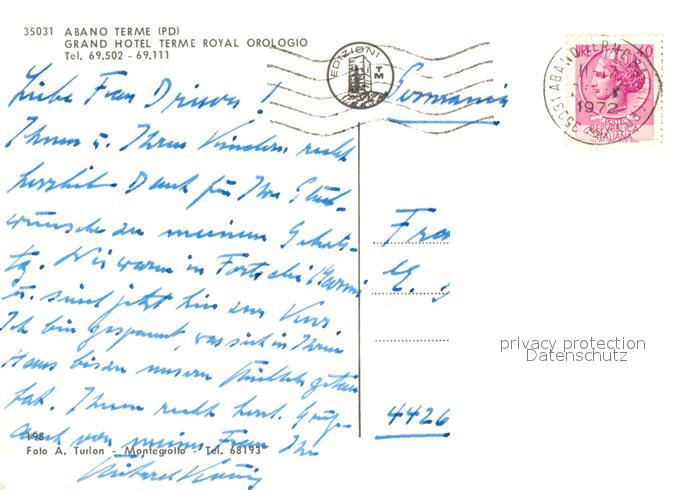 35031 ABANO TERME (PD)
GRAND HOTEL TERME ROYAL OROLOGIO
Tel. 69.502 - 69.111
EDIZIONI
TM
LIRE
35031 ABANO TERME
1972
POSTE
REPUBBLICA
ITALIANA
Germania
Liebe Frau
Ihnen u. Ihren Kindern recht
herzlich Dank für Ihre Glück-
wünsche zu meinem Geburts-
tg. Wir waren in Forte dei Marmi
u. sind jetzt hier zur Kur
Ich bin gespannt, was sich in Ihrem
Haus bis zu unserer Rückkehr getan
hat. Ihnen recht herzl. Grüße
auch von meiner Frau Ihr
Fra
4426
privacy protection
Datenschutz
198
Foto A. Turlon - Montegrotto - Tel. 68193